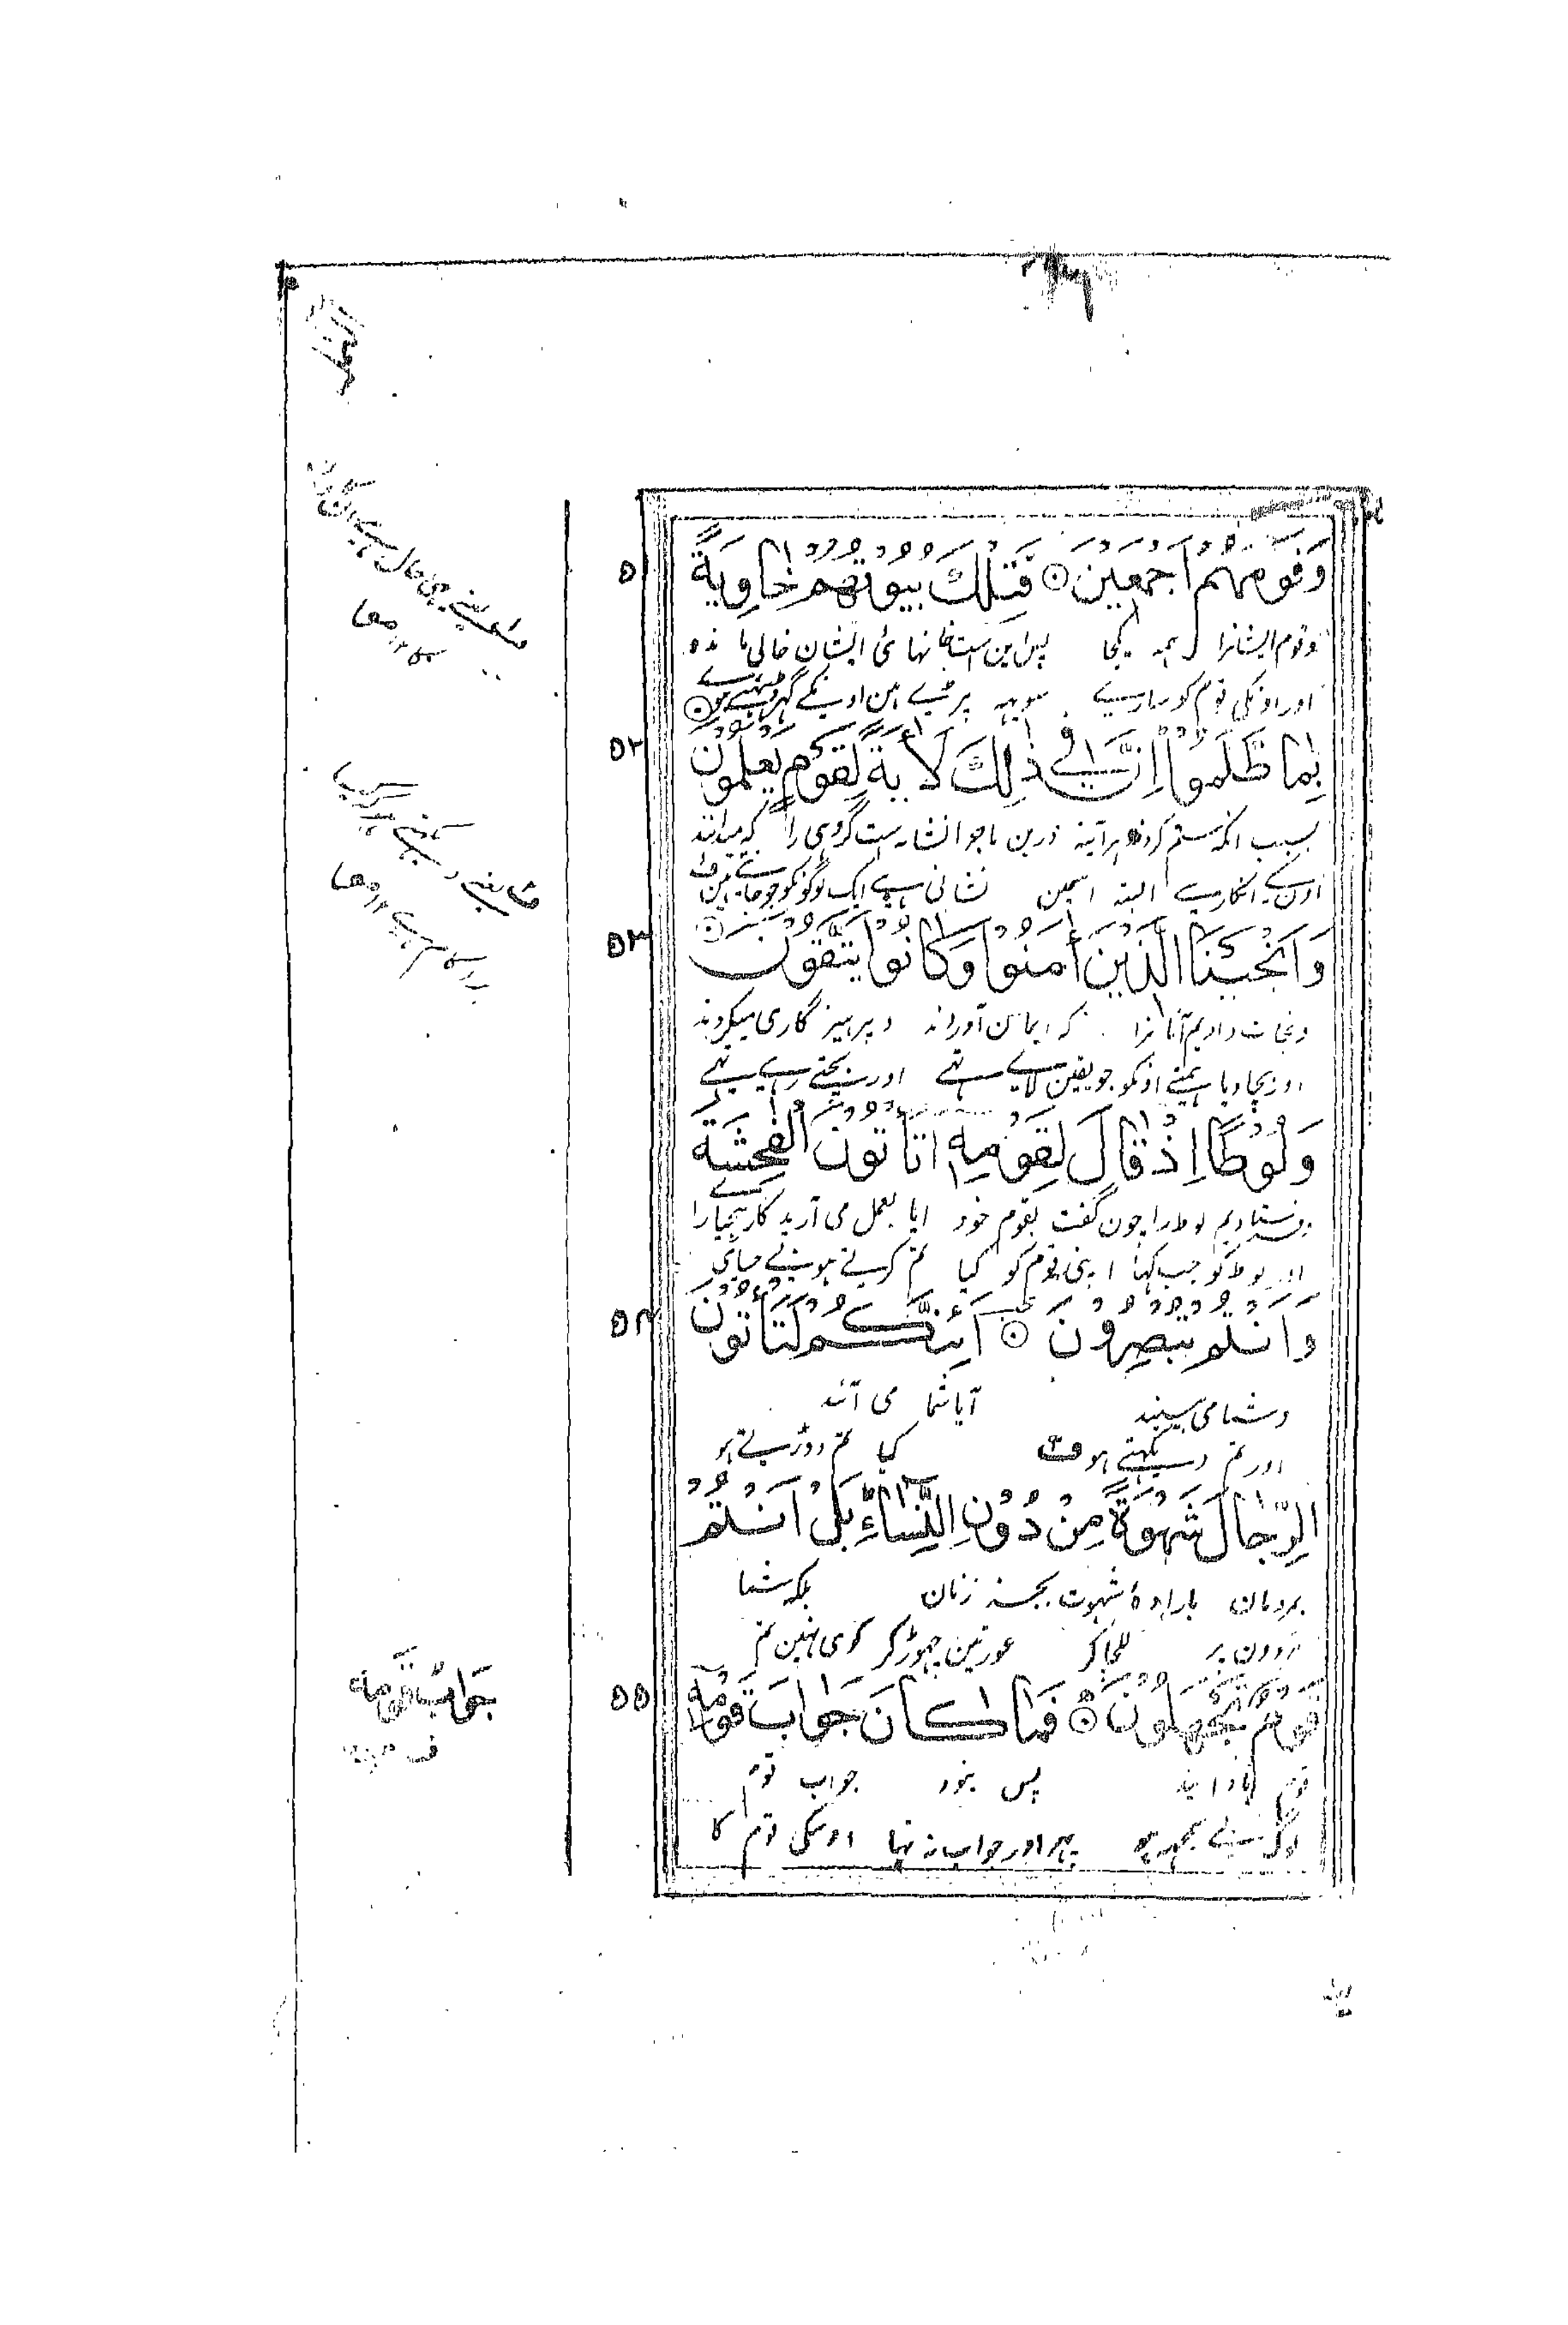 وَقَوْمَهُمْ اَجْمَعِيْنَ ۝ فَتِلْكَ بُيُوْتُهُمْ خَاوِيَةً
۵۱
وقوم ایشانرا همه یکجا پس این است خانهائی ایشان خالی مانده
اور اونکی قوم کو ساری سو یہہ پڑے ہین اونکے گہر
بِمَا ظَلَمُوْا اِنَّ فِيْ ذٰلِكَ لَاٰيَةً لِّقَوْمٍ يَّعْلَمُوْنَ ۝
۵۲
بسبب انکه ستم کردند هرآینه درین ماجرا نشانه ست گروهی را که میدانند
اونکے انکار سے البته اسمین نشانی ہے ایک لوگونکو جو جانتے ہین ف
وَاَنْجَيْنَا الَّذِيْنَ اٰمَنُوْا وَكَانُوْا يَتَّقُوْنَ ۝
۵۳
ونجات دادیم آنانرا که ایمان آوردند و پرهیز گاری میکردند
اور بچا دیا ہمنے اونکو جو یقین لائے تہے اور بچتے رہے تہے
وَلُوْطًا اِذْ قَالَ لِقَوْمِهٖٓ اَتَاْتُوْنَ الْفٰحِشَةَ
وفرستادیم لوط را چون گفت بقوم خود ایا بعمل می آرید کار بیحیا را
اور لوط کو جب کہا اپنی قوم کو کیا تم کرتے ہو بے حیائی
وَاَنْتُمْ تُبْصِرُوْنَ ۝ اَئِنَّكُمْ لَتَاْتُوْنَ
۵۴
وشما می بینید آیا شما می آئید
اور تم دیکہتے ہو ف کیا تم دوڑتے ہو
الرِّجَالَ شَهْوَةً مِّنْ دُوْنِ النِّسَآءِ بَلْ اَنْتُمْ
بمردمان باراده شهوت بجز زنان بلکه شما
مردون پر للچا کر عورتین چہوڑ کر کوئی نہین تم
قَوْمٌ تَجْهَلُوْنَ ۝ فَمَا كَانَ جَوَابَ قَوْمِهٖٓ
۵۵
قوم نادانید پس نبود جواب قوم
لوگ بے سمجہہ ہو پہر اور جواب نہ تہا اوسکی قوم کا
جَوَابَ قَوْمِهٖ